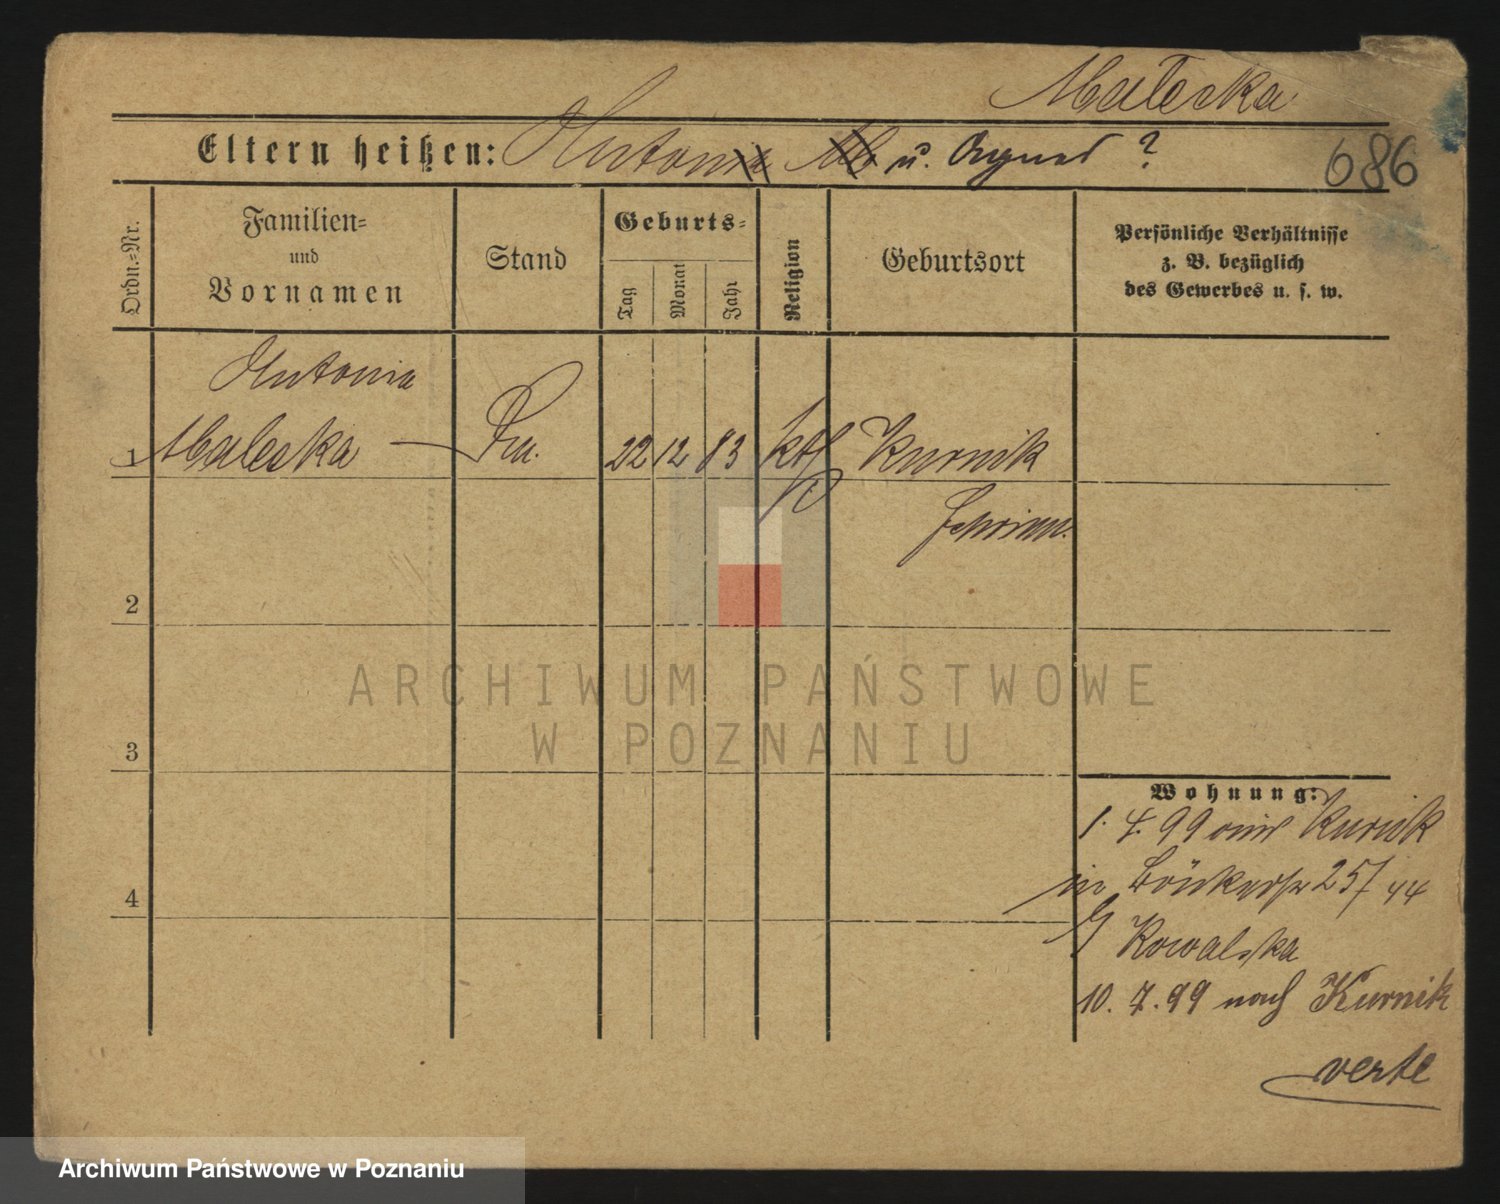 Maleska
Eltern heißen: Antoni u. ?
686
Ordn.-Nr.
Familien-
und
Vornamen
Stand
Geburts-
Tag
Monat
Jahr
Religion
Geburtsort
Persönliche Verhältnisse
z. B. bezüglich
des Gewerbes u. s. w.
Antonia
1 Maleska 22 12 83 kth Kurnik
Schrimm.
2
ARCHIWUM PAŃSTWOWE
W POZNANIU
3
Wohnung:
1. 7. 99 aus Kurnik
in 25/44
b/ Kowalska
10. 7. 99 nach Kurnik
verte
4
Archiwum Państwowe w Poznaniu